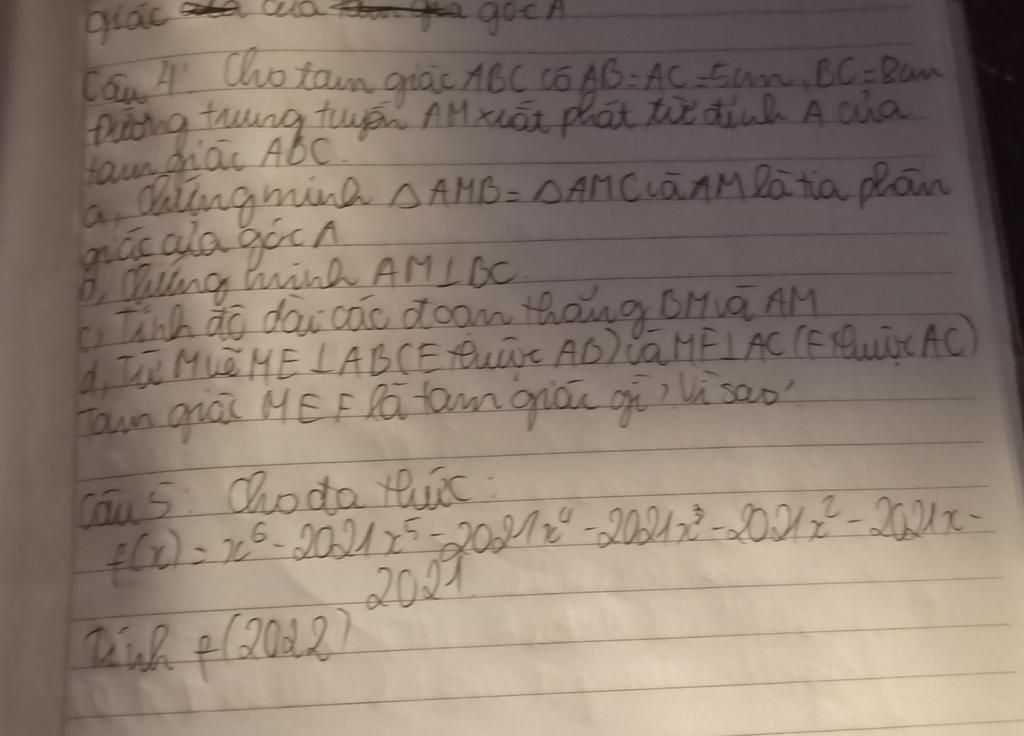 giác của góc A
Câu 4: Cho tam giác ABC có AB=AC=5cm, BC=8cm
Đường trung tuyến AM xuất phát từ đỉnh A của
tam giác ABC.
a, Chứng minh △AMB = △AMC và AM là tia phân
giác của góc A
b, Chứng minh AM⊥BC.
c, Tính độ dài các đoạn thẳng BM và AM
d, Từ M vẽ ME⊥AB(E thuộc AB) và MF⊥AC (F thuộc AC)
Tam giác MEF là tam giác gì? Vì sao?
Câu 5: Cho đa thức:
f(x) = x⁶ - 2021x⁵ - 2021x⁴ - 2021x³ - 2021x² - 2021x -
2021.
Tính f(2022)